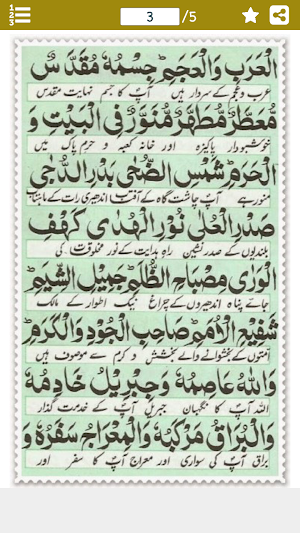 1
2
3
3
/5
الْعَرَبِ وَالْعَجَمِ ط جِسْمُهٗ مُقَدَّسٌ
عرب و عجم کے سردار ہیں آپؐ کا جسم نہایت مقدس
مُعَطَّرٌ مُّطَهَّرٌ مُّنَوَّرٌ فِي الْبَيْتِ وَ
خوشبودار پاکیزہ اور خانہ کعبہ و حرم پاک میں
الْحَرَمِ ط شَمْسِ الضُّحٰى بَدْرِ الدُّجٰى
منور ہے آپؐ چاشت گاہ کے آفتاب اندھیری رات کے ماہتاب
صَدْرِ الْعُلٰى نُوْرِ الْهُدٰى كَهْفِ
بلندیوں کے صدر نشین راہِ ہدایت کے نور مخلوقات کی
الْوَرٰى مِصْبَاحِ الظُّلَمِ ط جَمِيْلِ الشِّيَمِ ط
جائے پناہ اندھیروں کے چراغ نیک اطوار کے مالک
شَفِيْعِ الْاُمَمِ ط صَاحِبِ الْجُوْدِ وَالْكَرَمِ ط
امتوں کے بخشوانے والے بخشش و کرم سے موصوف ہیں
وَاللّٰهُ عَاصِمُهٗ وَجِبْرِيْلُ خَادِمُهٗ
اللہ آپؐ کا نگہبان جبریلؑ آپؐ کے خدمت گذار
وَالْبُرَاقُ مَرْكَبُهٗ وَالْمِعْرَاجُ سَفَرُهٗ وَ
براق آپؐ کی سواری اور معراج آپؐ کا سفر اور